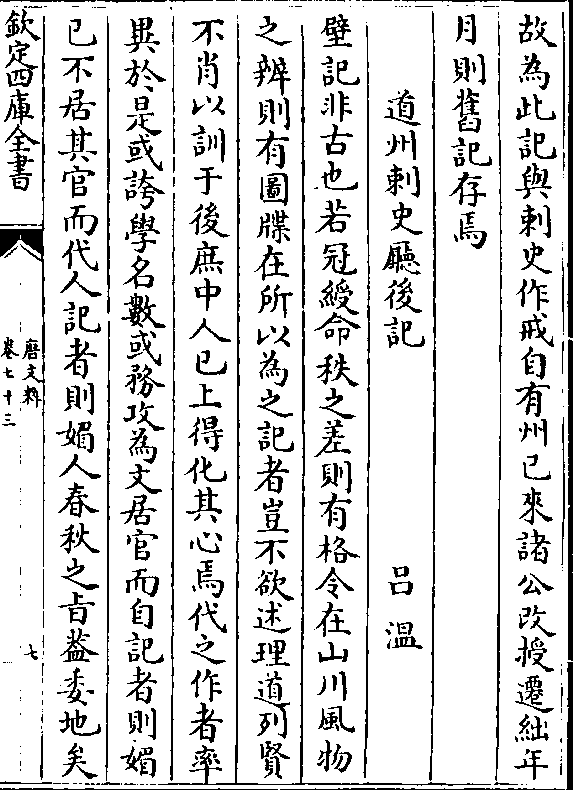 故為此記與刺史作戒自有州已來諸公改授遷絀年
月則舊記存焉
道州刺史廳後記 呂溫
壁記非古也若冠綬命秩之差則有格令在山川風物
之辨則有圖牒在所以為之記者豈不欲述理道列賢
不肖以訓于後庶中人已上得化其心焉代之作者率
異於是或誇學名數或務攻為文居官而自記者則媚
已不居其官而代人記者則媚人春秋之旨蓋委地矣
欽定四庫全書
唐文粹
卷七十三
七